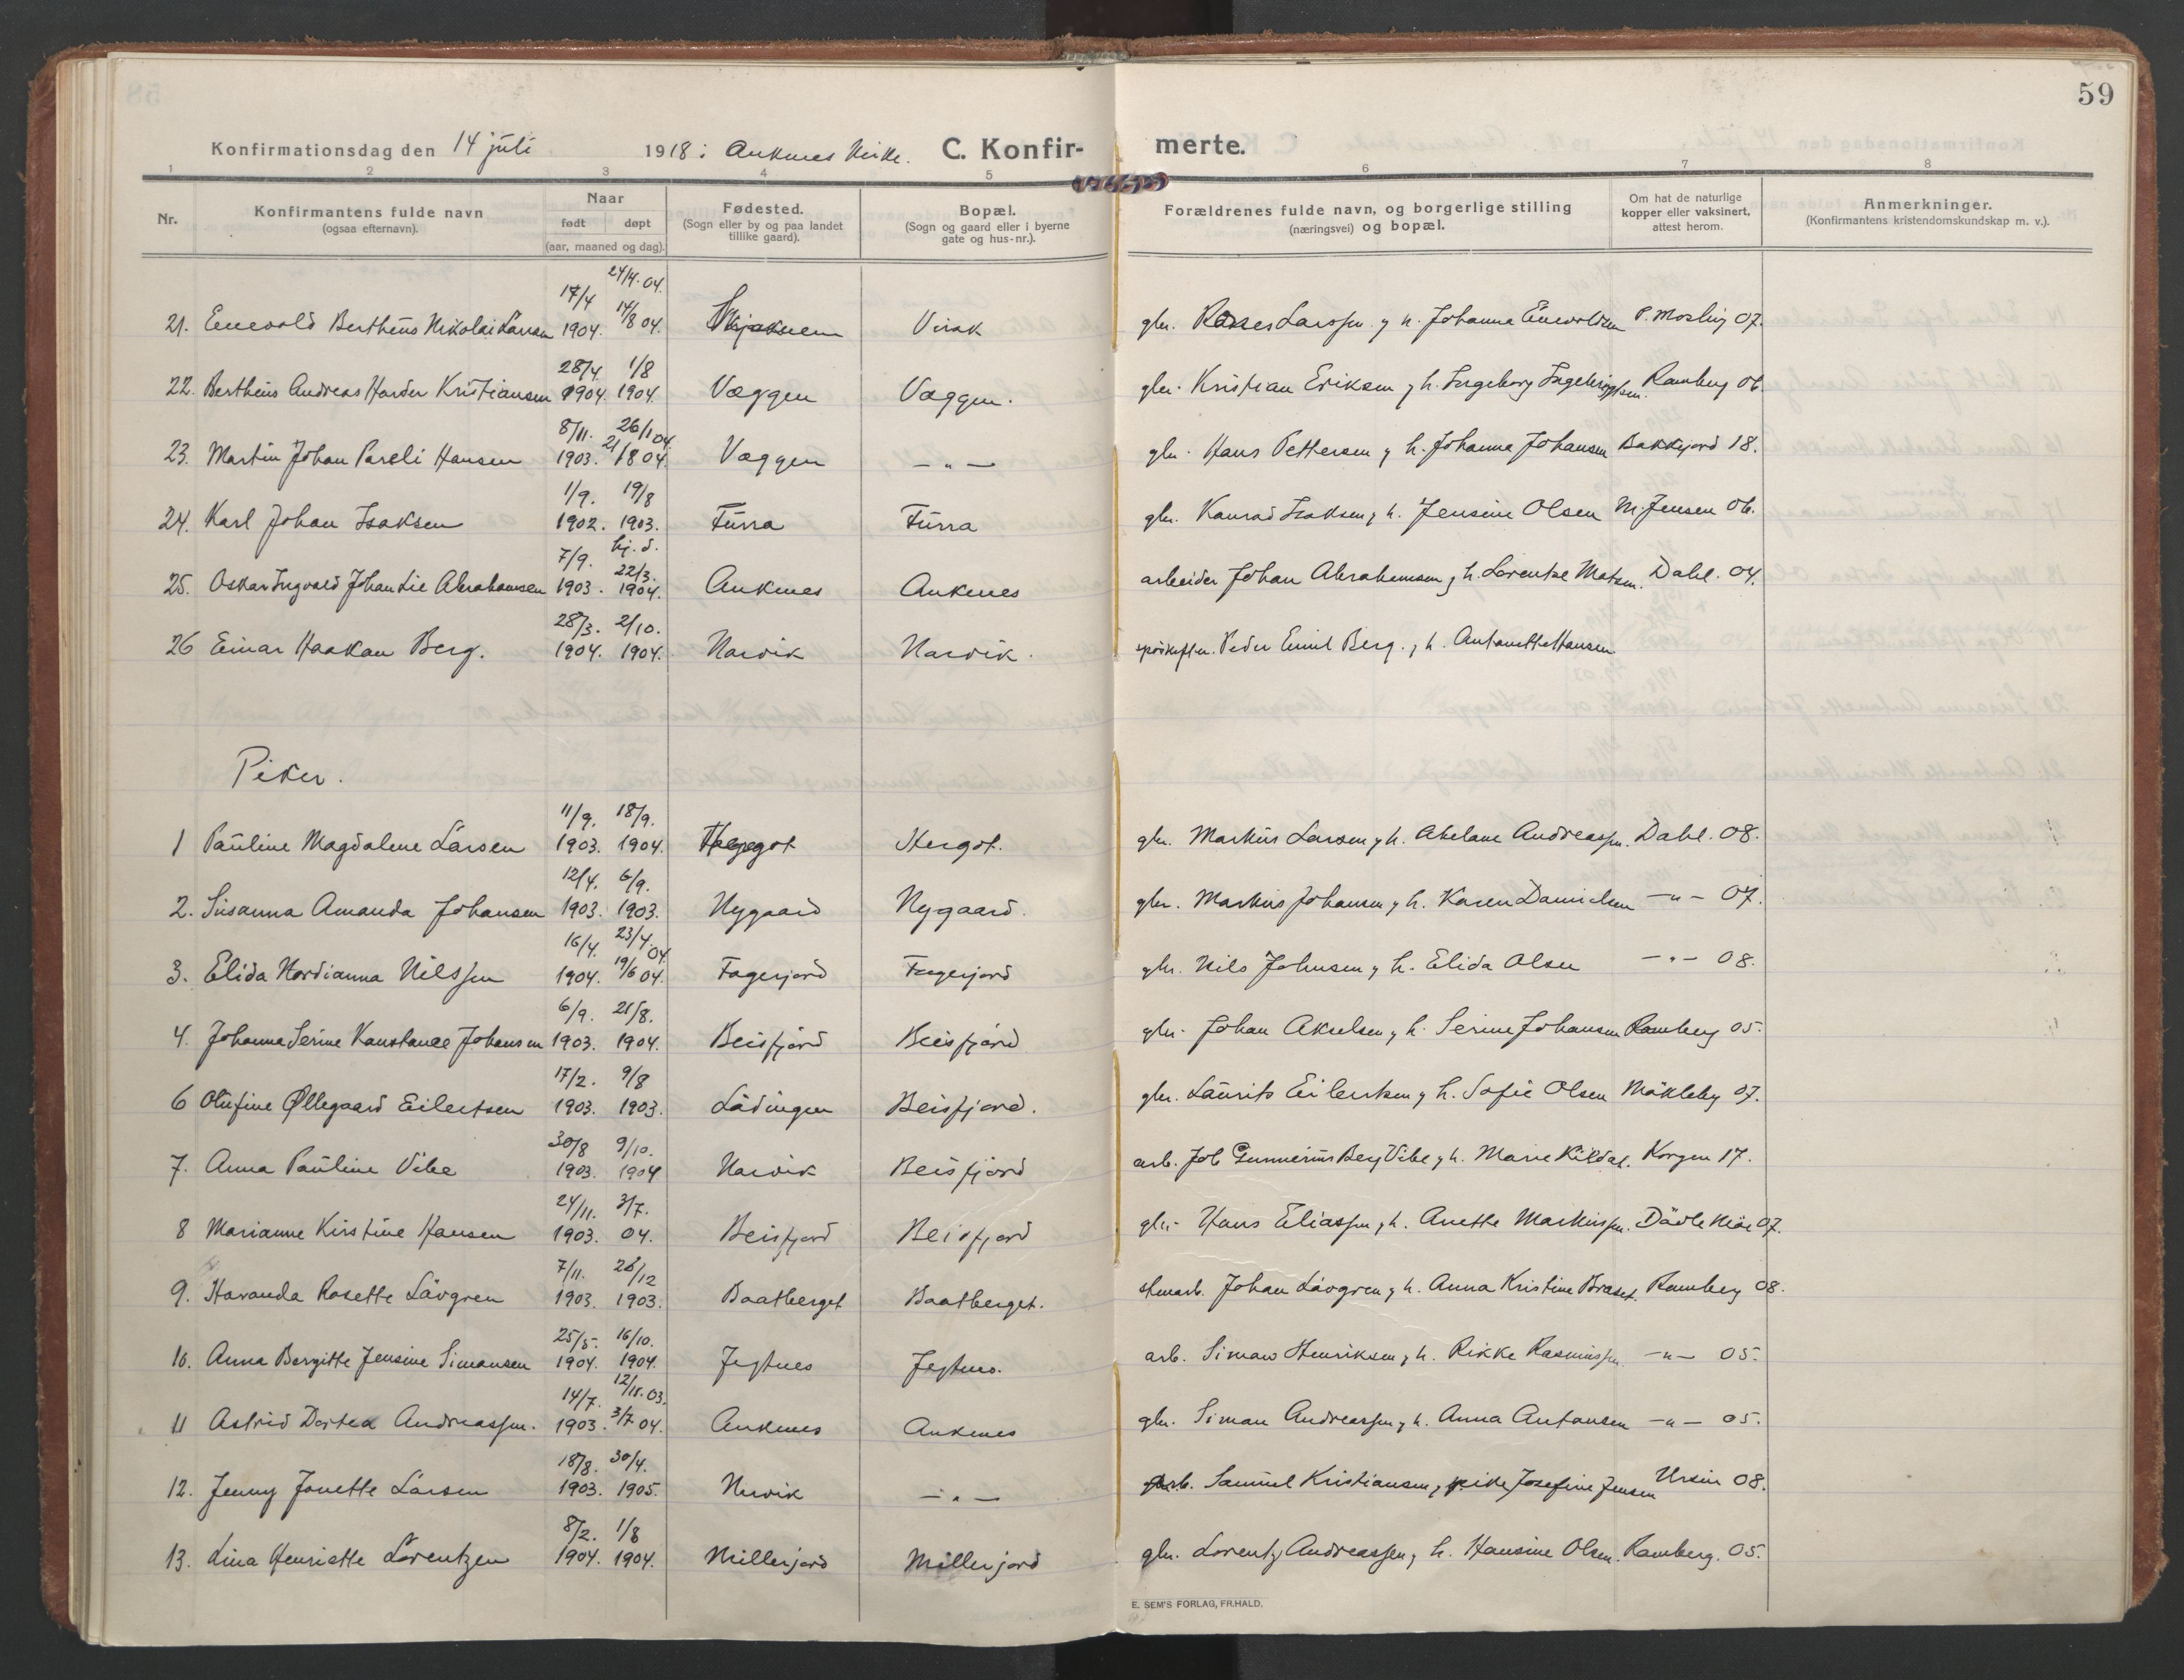 59
Konfirmationsdag den 14 juli 1918 i Ankenes kirke. C. Konfir- merte.
1 2 3 4 5 6 7 8
Nr. Konfirmantens fulde navn (ogsaa efternavn). Naar født døpt (aar, maaned og dag). Fødested. (Sogn eller by og paa landet tillike gaard). Bopæl. (Sogn og gaard eller i byerne gate og hus-nr.). Forældrenes fulde navn, og borgerlige stilling (næringsvei) og bopæl. Om hat de naturlige kopper eller vaksinert, attest herom. Anmerkninger. (Konfirmantens kristendomskundskap m. v.).
24/4.04.
17/4 14/8 04.
21. Enevold Bertheus Nikolai Larsen 1904. Virak gbr. Larssen y h. Johanna Enevoldsen P. Mosling 07.
28/4 1/8
22. Bertheus Andreas Harder Kristiansen 1904. 1904. Væggen Væggen. gbr. Kristian Eriksen y h. Ingeborg Ingebrigtsen. Ramberg 06
8/11. 26/1 04.
23. Martin Johan Pareli Hansen 1903. 21/8 04. Væggen —"— gbr. Hans Pettersen y h. Johanna Johansen Bakkejord 18.
1/9. 19/8
24. Karl Johan Isaksen 1902. 1903. Furra Furra gbr. Konrad Isaksen y h. Jensine Olsen M. Jensen 06.
7/9. hj. d. 22/3.
25. Oskar Ingvald Johan Lie Abrahamsen 1903. 1904. Ankenes Ankenes arbeider Johan Abrahamsen y h. Lorentze Matsen. Dahl. 04.
28/3. 2/10.
26 Einar Haakon Berg. 1904. 1904. Narvik Narvik. Peder Emil Berg. y h. Antonette Hansen
Piker.
11/9. 18/9.
1 Pauline Magdalene Larsen 1903. 1904. Hergot Hergot. gbr. Markus Larsen y h. Abelone Andreassen. Dahl. 08.
12/4. 6/9.
2. Susanna Amanda Johansen 1903. 1903. Nygaard Nygaard. gbr. Markus Johansen y h. Karen Danielsen —"— 07.
16/4. 23/4.04
3. Elida Nordianna Nilssen 1904. 19/6 04. Fagerjord Fagerjord gbr. Nils Johnsen y h. Elida Olsen —"— 08.
6/9. 21/8.
4. Johanna Serine Konstanse Johansen 1903. 1904. Beisfjord Beisfjord gbr. Johan Akselsen y h. Serine Johansen Ramberg 05.
17/2. 9/8
6 Olufine Øllegaard Eilertsen 1903. 1903. Lødingen Beisfjord. gbr. Laurits Eilertsen y h. Sofie Olsen Møkleby 07.
30/8 9/10.
7. Anna Pauline Vibe 1903. 1904 Narvik Beisfjord arb. Job Gunnerius Berg Vibe y h. Marie Kildal. Korgen 17.
24/11. 3/7.
8 Marianne Kirstine Hansen 1903. 04. Beisfjord Beisfjord gbr. Hans Eliassen y h. Anette Markussen. 07.
7/11. 26/12
9. Havanda Rosette Løvgren 1903. 1903. Baatberget Baatberget. Johan Løvgren y h. Anna Kristine Braset. Ramberg 08.
25/5. 16/10.
10. Anna Bergitte Jensine Simonsen 1904. 1904. Jegtnes Jegtnes. arb. Simon Henriksen y h. Rikke Rasmussen —"— 05.
14/7. 12/11.03.
11 Astrid Dortea Andreassen. 1903. 3/7 04. Ankenes Ankenes gbr. Simon Andreassen y h. Anna Antonsen —"— 05.
18/8. 30/4.
12. Jenny Jonette Larsen 1903. 1905. Narvik —"— arb. Samuel Kristiansen, pike Josefine Jensen Ursin 08.
8/2. 1/8
13. Lina Henriette Lorentzen 1904. 1904. Millerjord Millerjord gbr. Lorentz Andreassen y h. Hansine Olsen. Ramberg. 05.
E. SEM'S FORLAG, FR.HALD.